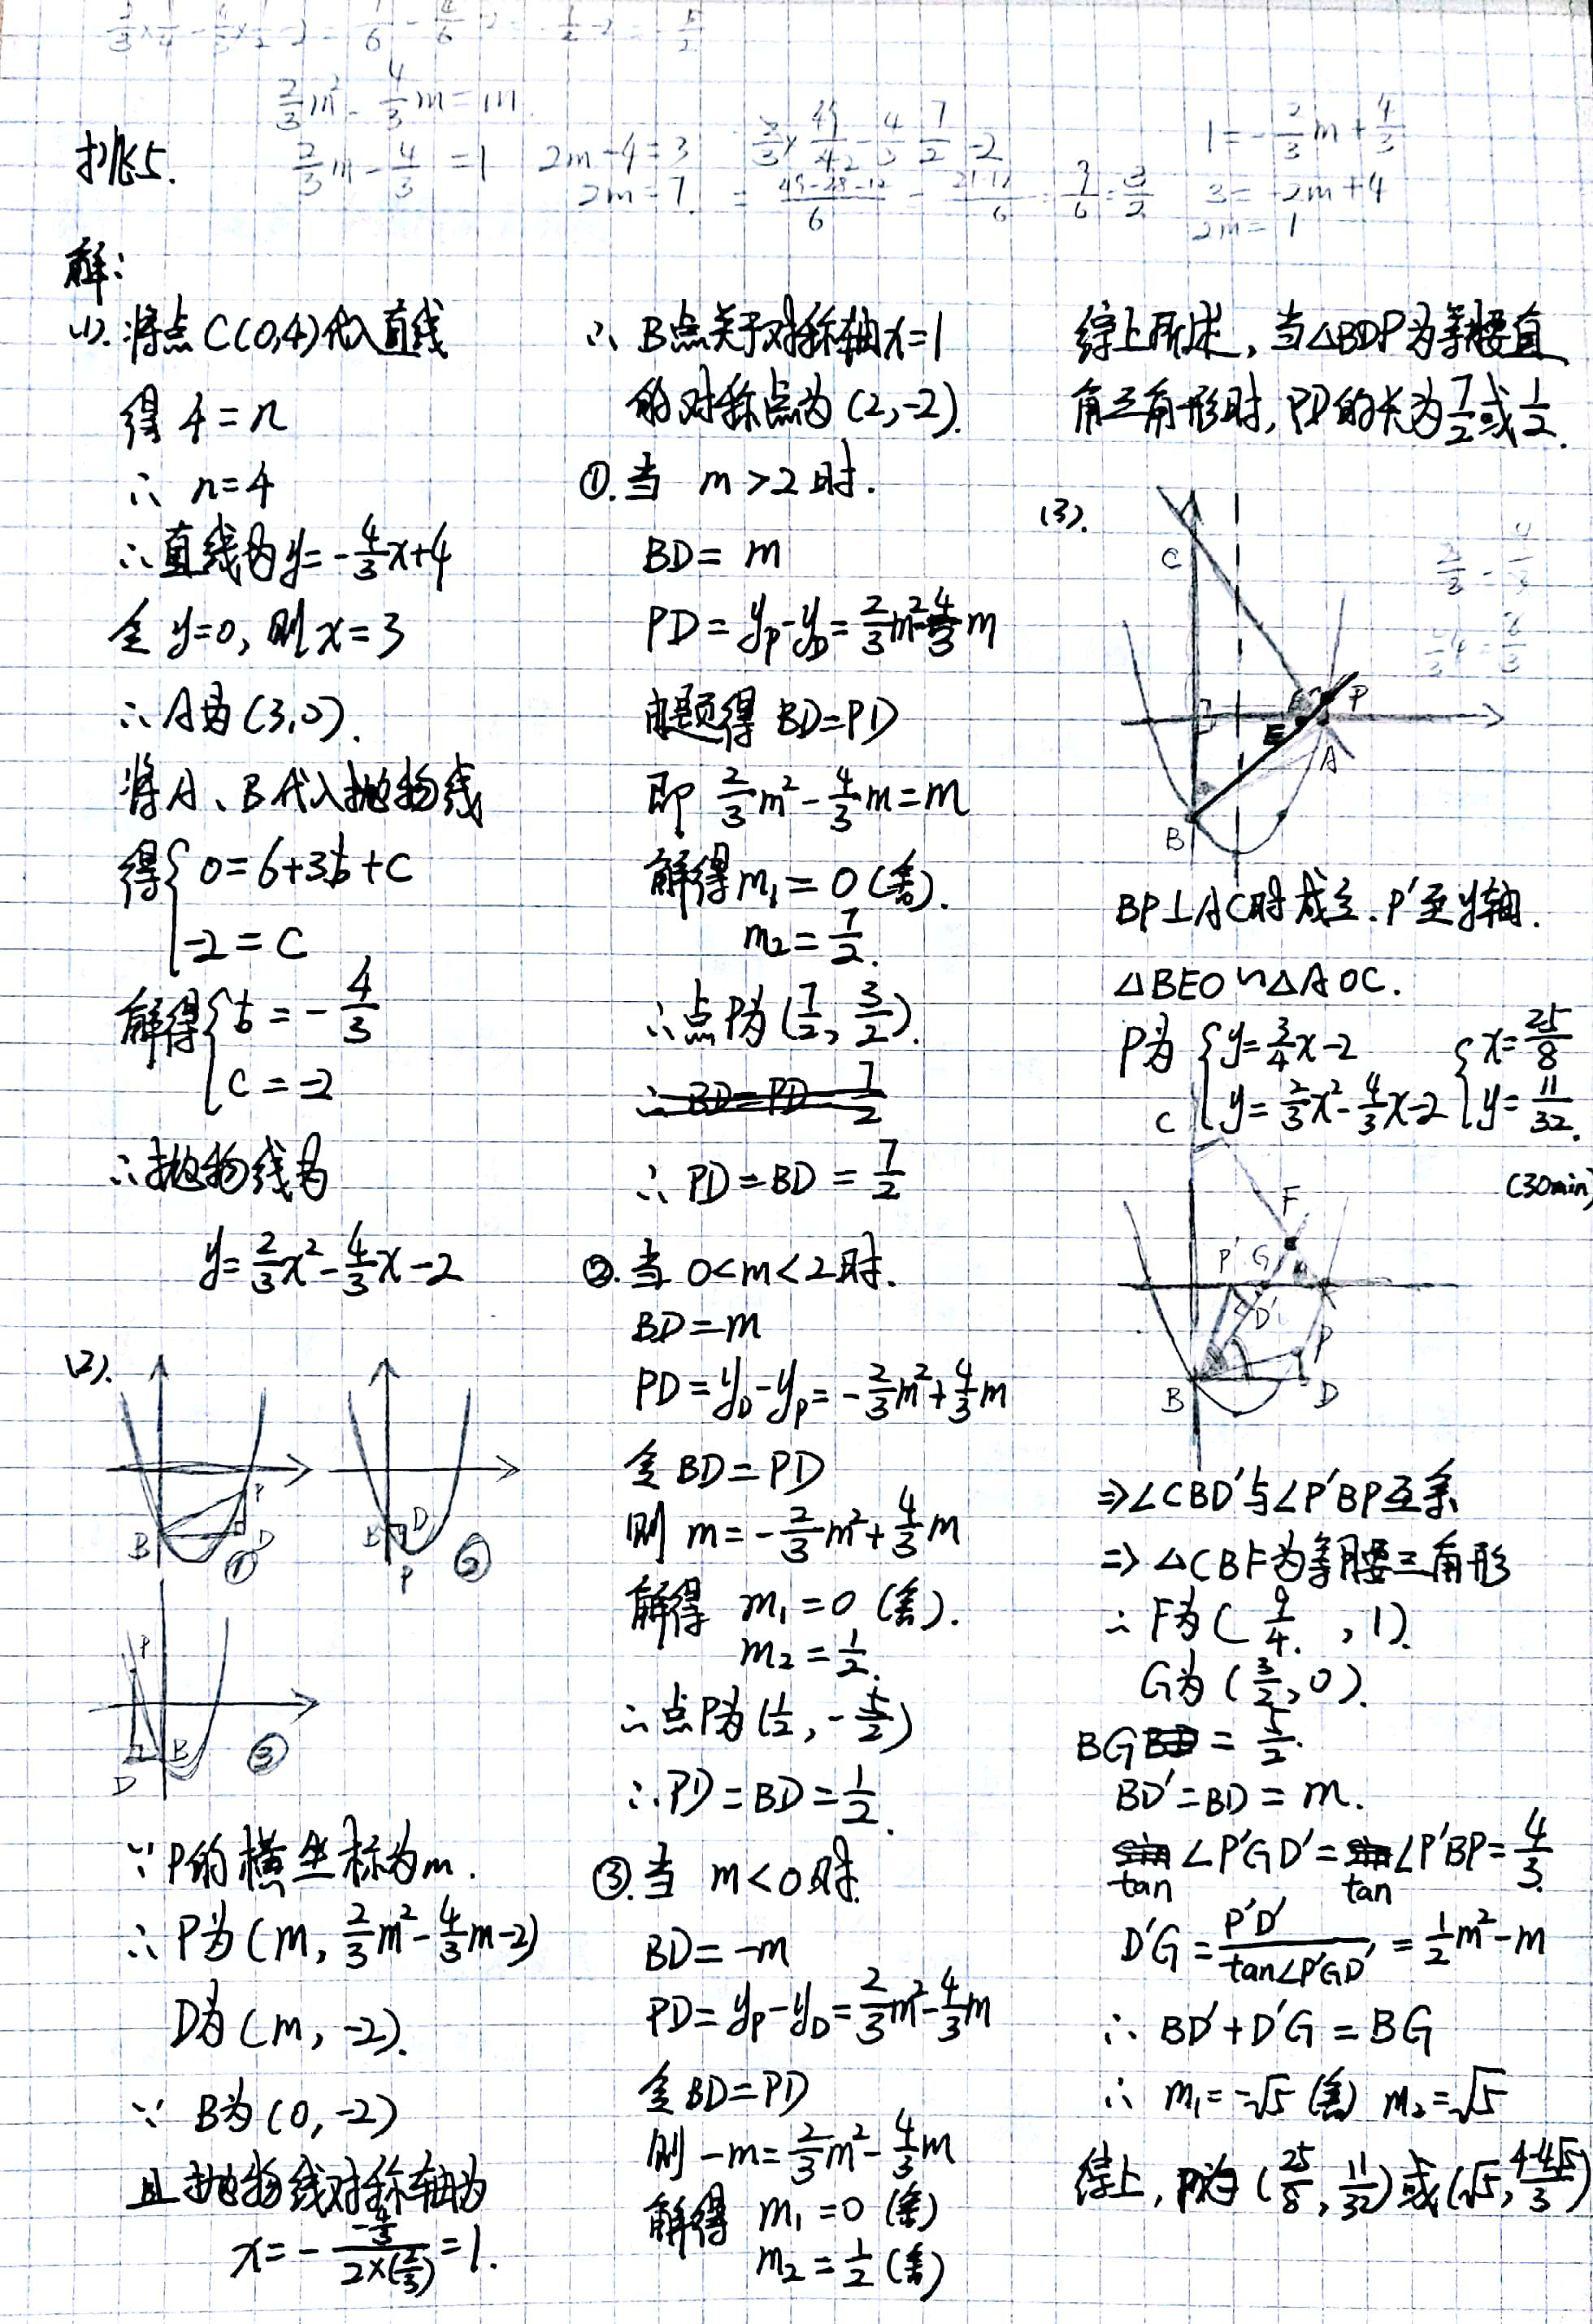 2/3 m² - 4/3 m = m
2/3 m - 4/3 = 1
2m - 4 = 3
2m = 7
1 = -2/3 m + 4/3
3 = -2m + 4
2m = 1
挑5.
解:
(1). 将点C(0,4)代入直线
得 4 = n
∴ n = 4
∴直线为y = -4/3 x + 4
令 y=0, 则x = 3
∴A为(3,0).
将A、B代入抛物线
得{ 0 = 6+3b+C
-2 = C
解得{ b = -4/3
C = -2
∴抛物线为
y = 2/3 x² - 4/3 x - 2
(2).
B P D ①
B D P ②
P B D ③
∵P的横坐标为m.
∴P为(m, 2/3 m² - 4/3 m - 2)
D为(m, -2).
∵ B为(0, -2)
且抛物线对称轴为
x = - (-4/3)/(2×(2/3)) = 1.
∴ B点关于对称轴x=1
的对称点为(2,-2).
①.当 m>2时.
BD = m
PD = yP - yD = 2/3 m² - 4/3 m
由题得 BD=PD
即 2/3 m² - 4/3 m = m
解得m₁ = 0 (舍).
m₂ = 7/2.
∴点P为(7/2, 3/2).
∴ BD = PD = 7/2
∴ PD = BD = 7/2
②.当 0<m<2时.
BD = m
PD = yD - yP = -2/3 m² + 4/3 m
令 BD = PD
则 m = -2/3 m² + 4/3 m
解得 m₁ = 0 (舍).
m₂ = 1/2.
∴点P为(1/2, -5/2)
∴PD = BD = 1/2.
③.当 m<0时.
BD = -m
PD = yP - yD = 2/3 m² - 4/3 m
令 BD = PD
则 -m = 2/3 m² - 4/3 m
解得 m₁ = 0 (舍)
m₂ = 1/2 (舍)
综上所述, 当△BDP为等腰直
角三角形时, PD的长为7/2或1/2.
(3).
C
P
E
A
B
BP⊥AC时成立. P'至y轴.
△BEO∽△AOC.
P为 { y = 3/4 x - 2
y = 2/3 x² - 4/3 x - 2
{ x = 25/8
y = 11/32.
(30min)
C
F
P' G
D'
P
B D
⇒∠CBD'与∠P'BP互余
⇒ △CBF为等腰三角形
∴ F为(9/4, 1).
G为(3/2, 0).
BG = 5/2.
BD' = BD = m.
tan∠P'GD' = tan∠P'BP = 4/3.
D'G = P'D'/tan∠P'GD' = 1/2 m² - m
∴ BD' + D'G = BG
∴ m₁ = -√5 (舍) m₂ = √5
综上, P为(25/8, 11/32)或(√5, (4-4√5)/3)